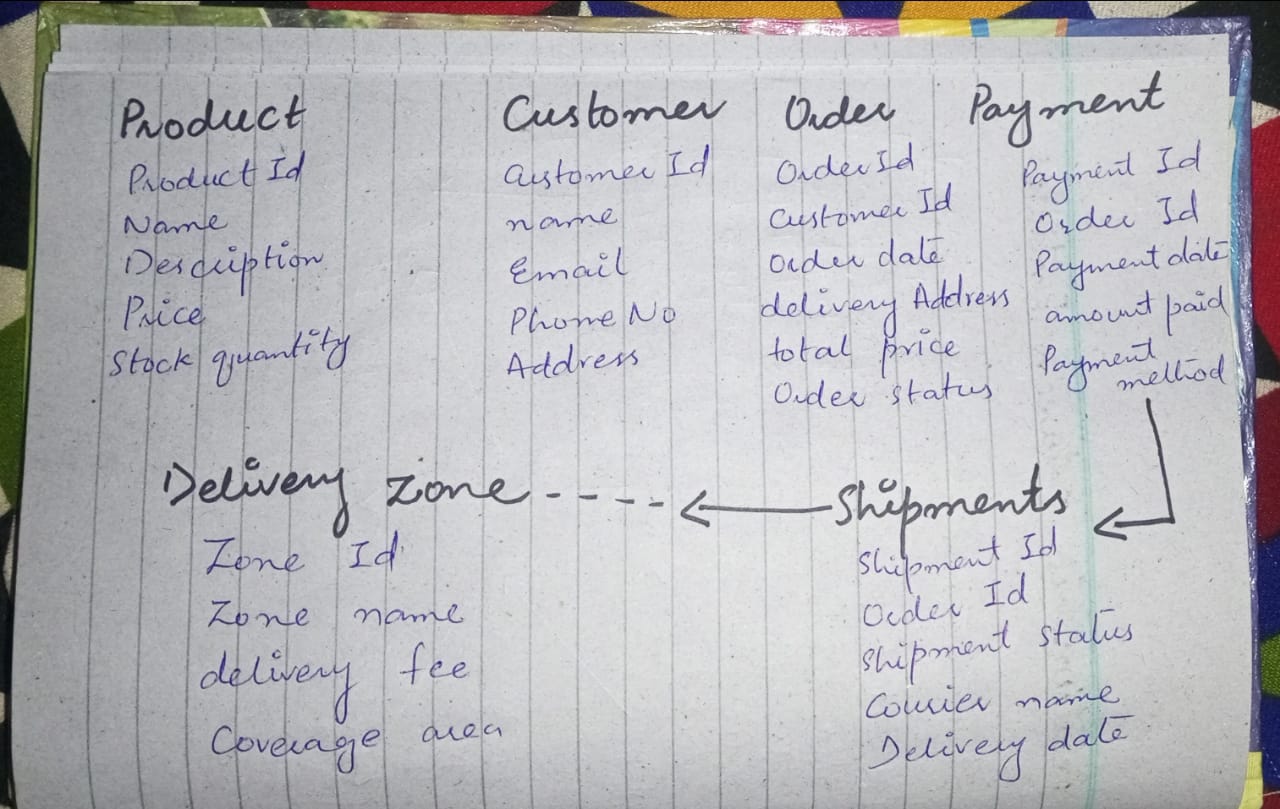 Product
Product Id
Name
Description
Price
Stock quantity
Customer
Customer Id
name
Email
Phone No
Address
Order
Order Id
Customer Id
Order date
delivery Address
total price
Order status
Payment
Payment Id
Order Id
Payment date
amount paid
Payment
method
Delivery Zone
Zone Id
Zone name
delivery fee
Coverage area
Shipments
Shipment Id
Order Id
Shipment status
Courier name
Delivery date